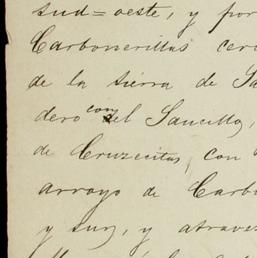 sud=oeste, y por
Carbonerillas cer
de la sierra de Sa
dero con el Saucillo,
de Cruzecitas, con
arroyo de Carb
y sur, y atraves